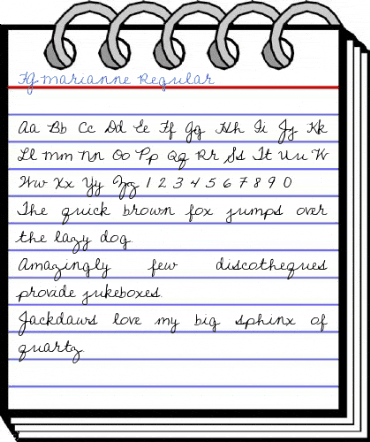 Fg Marianne Regular
Aa Bb Cc Dd Ee Ff Gg Hh Ii Jj Kk
Ll Mm Nn Oo Pp Qq Rr Ss Tt Uu Vv
Ww Xx Yy Zz 1 2 3 4 5 6 7 8 9 0
The quick brown fox jumps over
the lazy dog.
Amazingly few discotheques
provide jukeboxes.
Jackdaws love my big sphinx of
quartz.